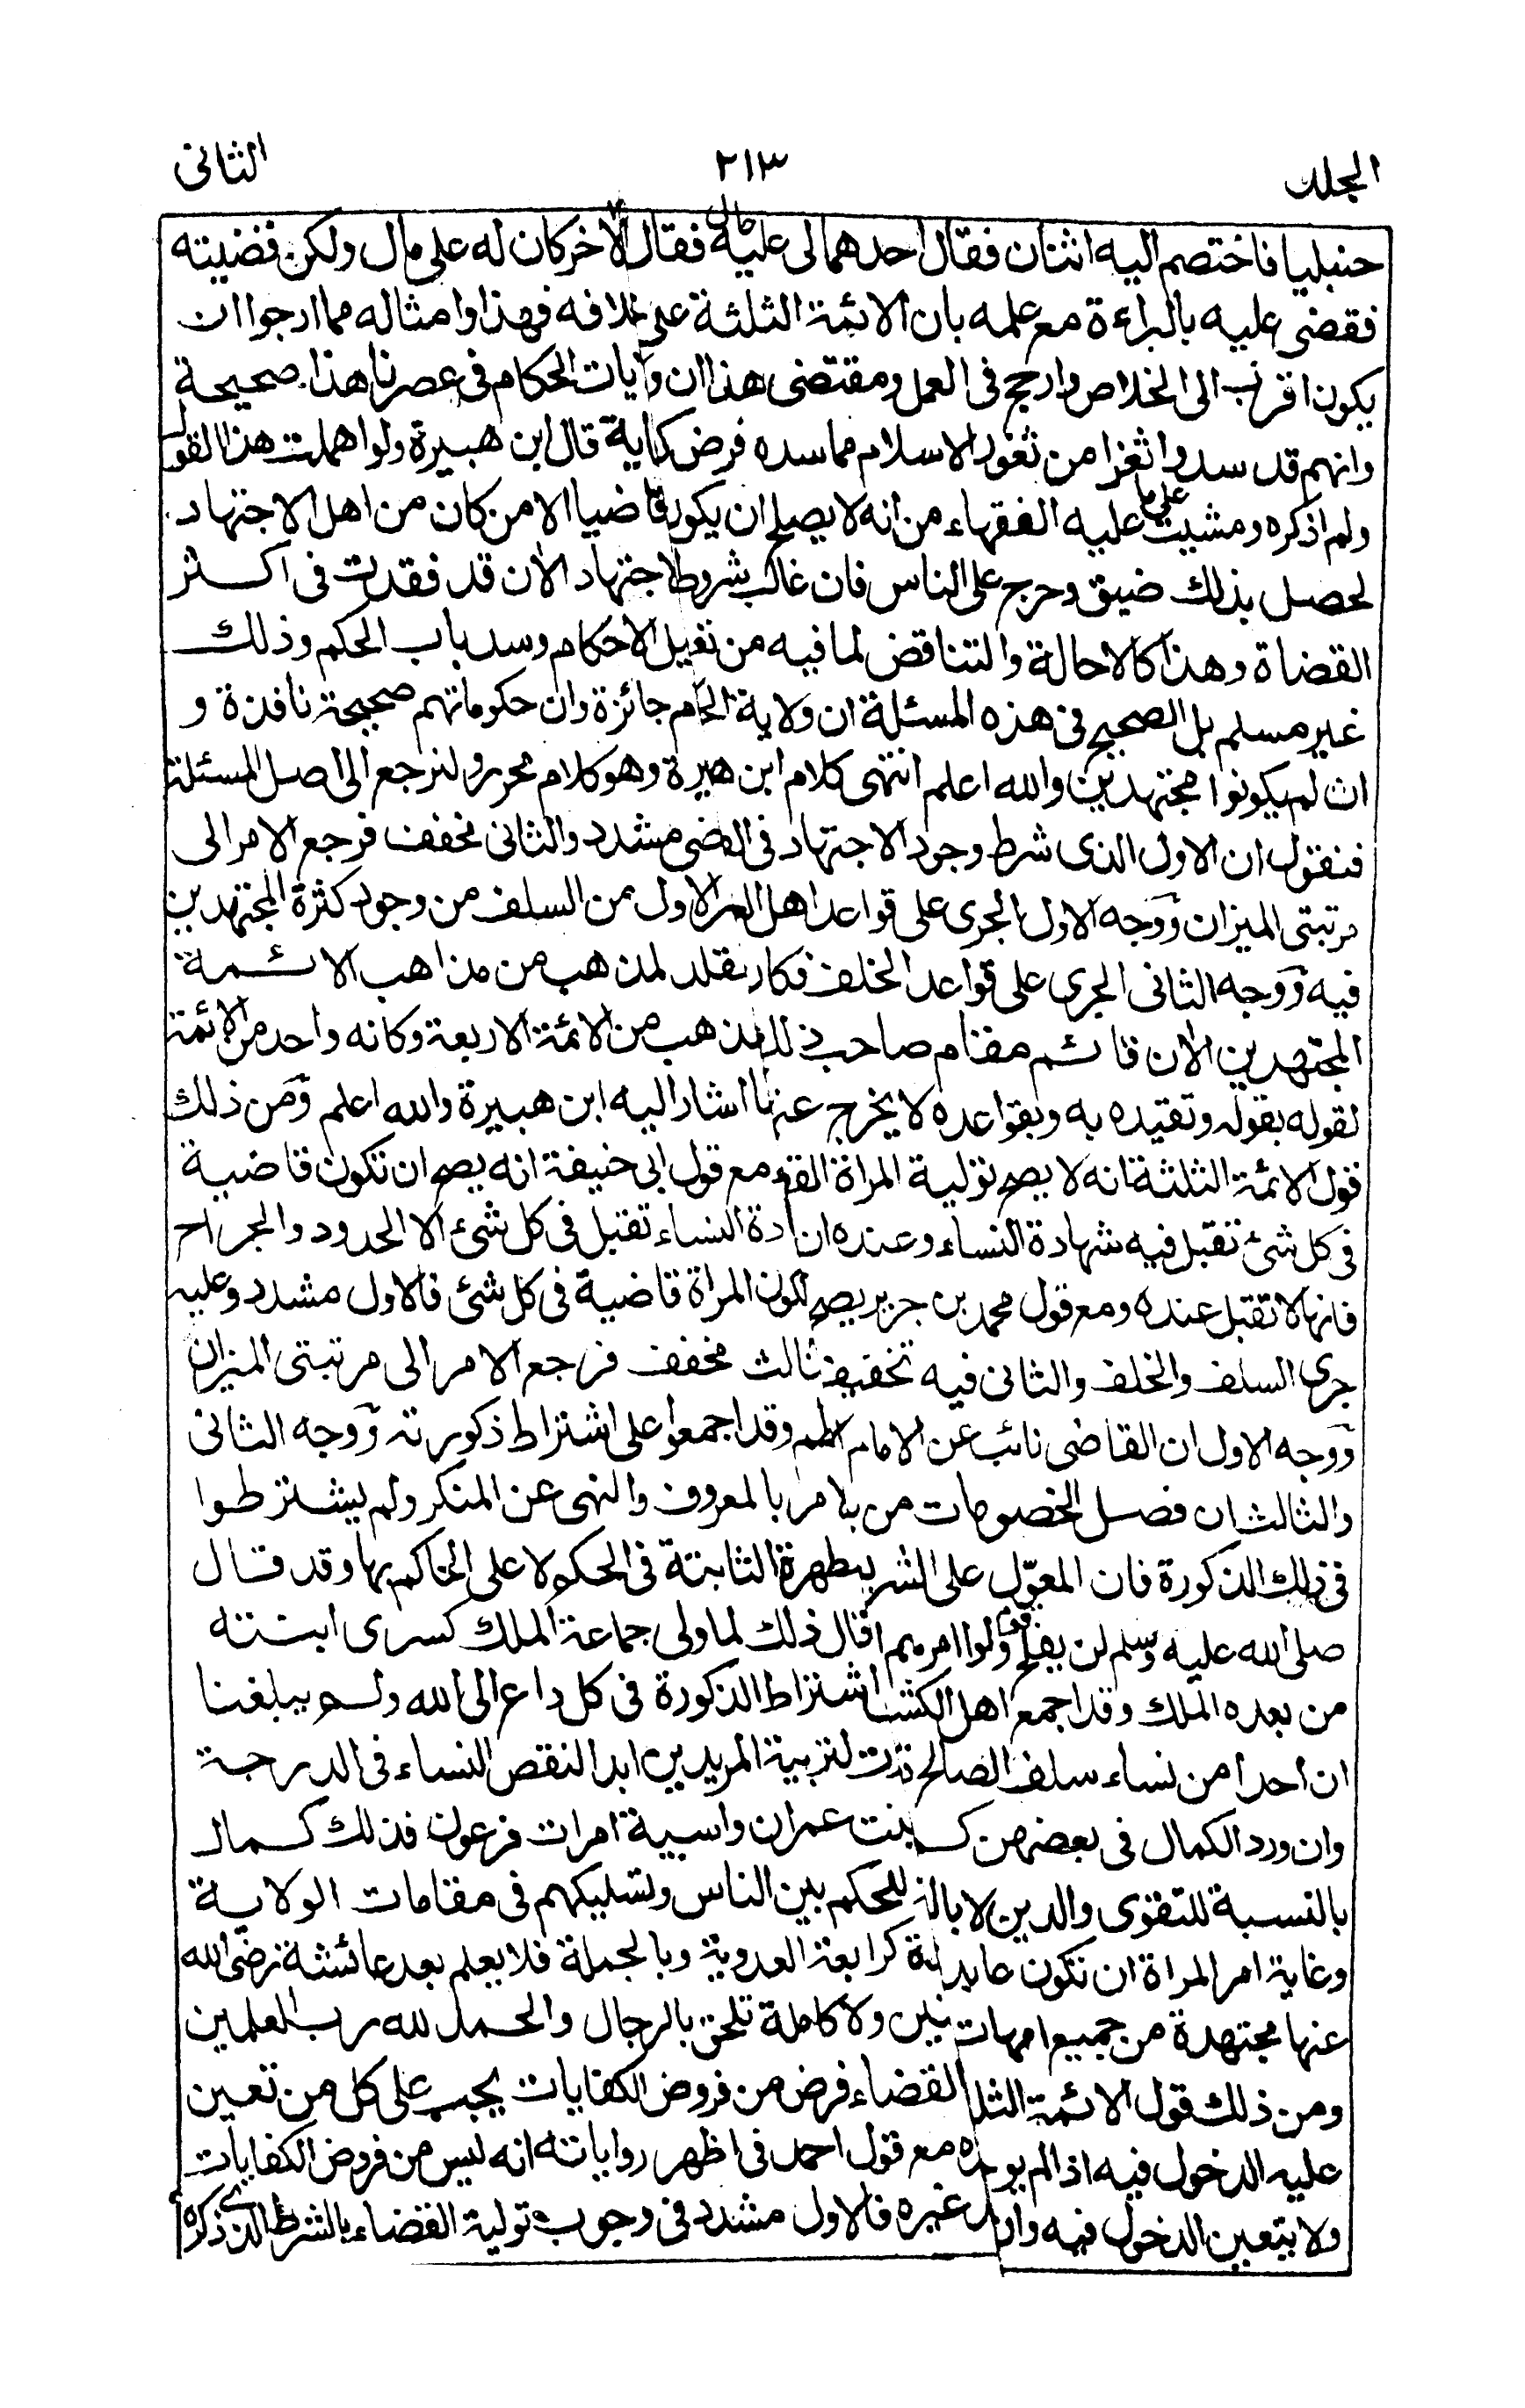 المجلد ٢١٣ الثانى
حنبليا فاختصم اليه اثنان فقال احدهما لى عليه مال فقال الاخر كان له على مال ولكن قضيته
فقضى عليه بالبراءة مع علمه بان الائمة الثلثة على خلافه فهذا وامثاله مما ارجوا ان
يكون اقرب الى الخلاص وارجح فى العمل ومقتضى هذا ان ولايات الحكام فى عصرنا هذا صحيحة
وانهم قد سدوا ثغرا من ثغور الاسلام مما سده فرض كفاية قال ابن هبيرة ولو اهملت هذا القول
ولم اذكره ومشيت على ما عليه الفقهاء من انه لا يصلح ان يكون قاضيا الا من كان من اهل الاجتهاد
لحصل بذلك ضيق وحرج على الناس فان غالب شروط الاجتهاد الان قد فقدت فى اكثر
القضاة وهذا كالاحالة والتناقض لما فيه من تعطيل الاحكام وسد باب الحكم وذلك
غير مسلم بل الصحيح فى هذه المسئلة ان ولاية الحكام جائزة وان حكوماتهم صحيحة نافذة و
ان لم يكونوا مجتهدين والله اعلم انتهى كلام ابن هبيرة وهو كلام محرر ولنرجع الى اصل المسئلة
فنقول ان الاول الذى شرط وجود الاجتهاد فى القاضى مشدد والثانى مخفف فرجع الامر الى
مرتبتى الميزان ووجه الاول الجرى على قواعد اهل العصر الاول من السلف من وجود كثرة المجتهدين
فيه ووجه الثانى الجرى على قواعد الخلف فكان مقلد لمذهب من مذاهب الائمة
المجتهدين الان قائم مقام صاحب ذلك المذهب من الائمة الاربعة وكانه واحد من الائمة
لقوله بقوله وتقيده به وبقواعده لا يخرج عنها كما اشار اليه ابن هبيرة والله اعلم ومن ذلك
قول الائمة الثلثة انه لا يصح تولية المراة القضاء مع قول ابى حنيفة انه يصح ان تكون قاضية
فى كل شئ تقبل فيه شهادة النساء وعنده ان شهادة النساء تقبل فى كل شئ الا الحدود والجراح
فانها لا تقبل عنده ومع قول محمد بن جرير يصح ان تكون المراة قاضية فى كل شئ فالاول مشدد وعليه
جرى السلف والخلف والثانى فيه تخفيف والثالث مخفف فرجع الامر الى مرتبتى الميزان
ووجه الاول ان القاضى نائب عن الامام الاعظم وقد اجمعوا على اشتراط ذكورته ووجه الثانى
والثالث ان فصل الخصومات من باب الامر بالمعروف والنهى عن المنكر ولم يشترطوا
فى ذلك الذكورة فان المعوّل على الشريعة المطهرة الثابتة فى الحكم لا على الحاكم بها وقد قال
صلى الله عليه وسلم لن يفلح قوم ولوا امرهم امراة قال ذلك لما ولى جماعة الملك كسرى ابنته
من بعده الملك وقد اجمع اهل الكشف على اشتراط الذكورة فى كل داع الى الله ولم يبلغنا
ان احدا من نساء سلف الصالح تصدرت لتربية المريدين ابدا لنقص النساء فى الدرجة
وان ورد الكمال فى بعضهن كمريم بنت عمران واسية امرات فرعون فذلك كمال
بالنسبة للتقوى والدين لا بالنسبة للحكم بين الناس وتسليكهم فى مقامات الولاية
وغاية امر المراة ان تكون عابدة زاهدة كرابعة العدوية وبالجملة فلا يعلم بعد عائشة رضى الله
عنها مجتهدة من جميع امهات المؤمنين ولا كاملة تلحق بالرجال والحمد لله رب العلمين
ومن ذلك قول الائمة الثلثة ان القضاء فرض من فروض الكفايات يجب على كل من تعين
عليه الدخول فيه اذا لم يوجد غيره مع قول احمد فى اظهر رواياته انه ليس من فروض الكفايات
ولا يتعين الدخول فيه وان لم يوجد غيره فالاول مشدد فى وجوب تولية القضاء بالشرط الذى ذكره